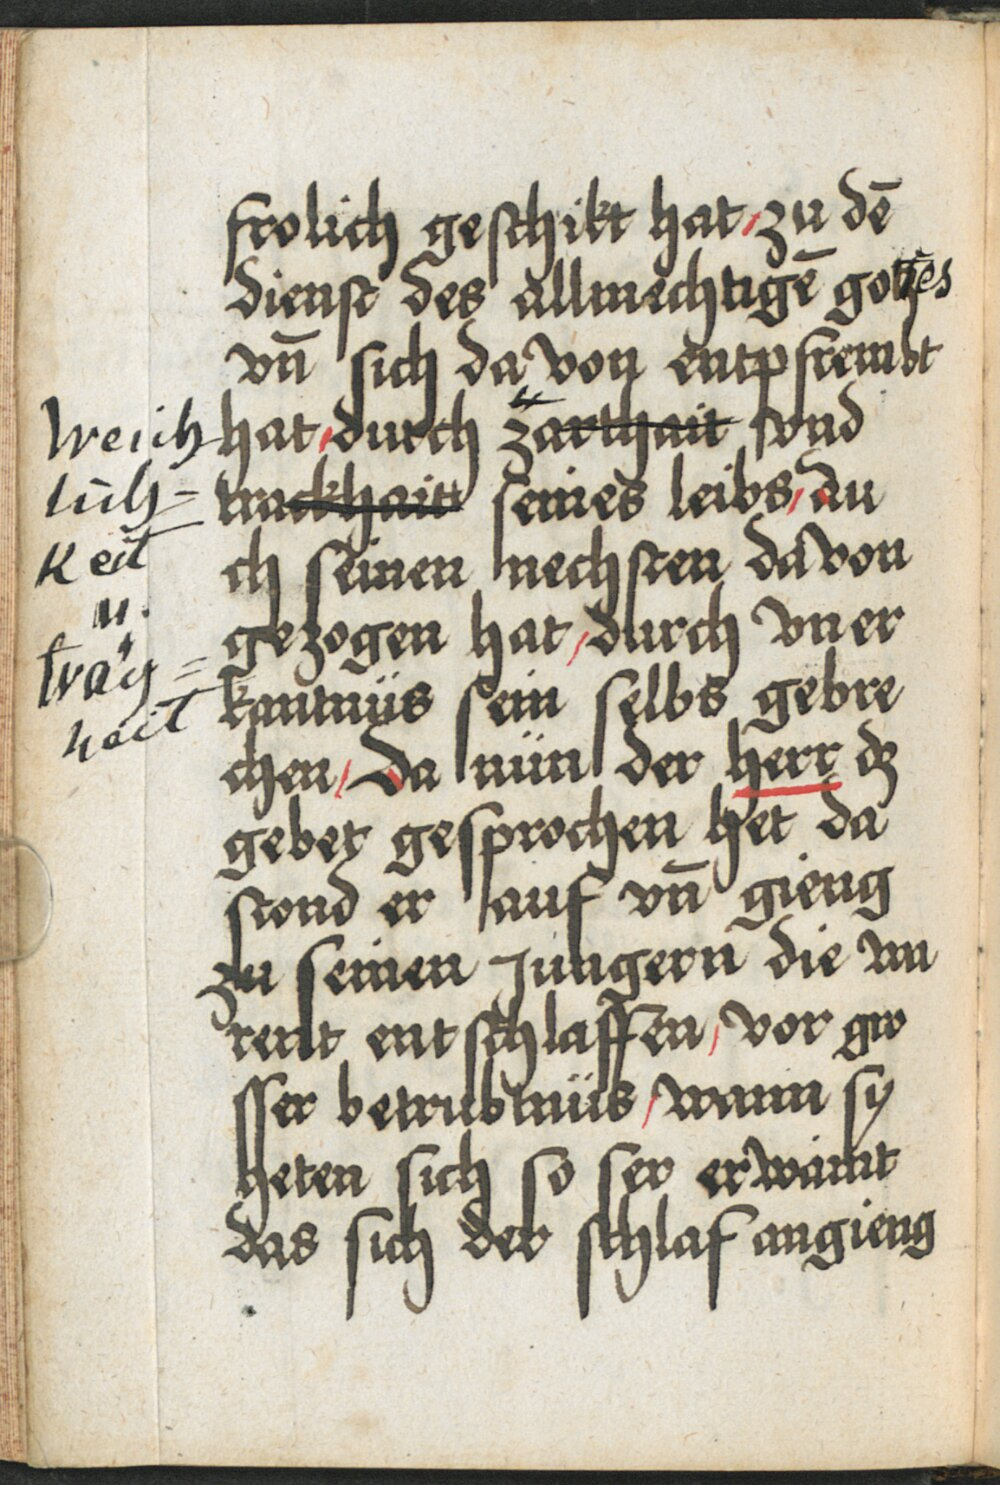 frolich geschikt hat / zu dē
dienst des allmechtigē gottes
vn̄ sich da von entpfrembt
hat / durch zarthait vnd
trackhaitt seines leibs / au
ch seinen nechsten da von
gezogen hat / durch vn er
kantnüs sein selbs gebre
chen / Da nün der herr dz
gebet gesprochen het da
stond er auf vn̄ gieng
zu seinen Jungern die wa
rent entschlaffen / vor gro
sser betrubnüs / wann sy
heten sich so ser erwaint
das sich der schlaf angieng
Weich
lich=
keit
u.
träg=
heit